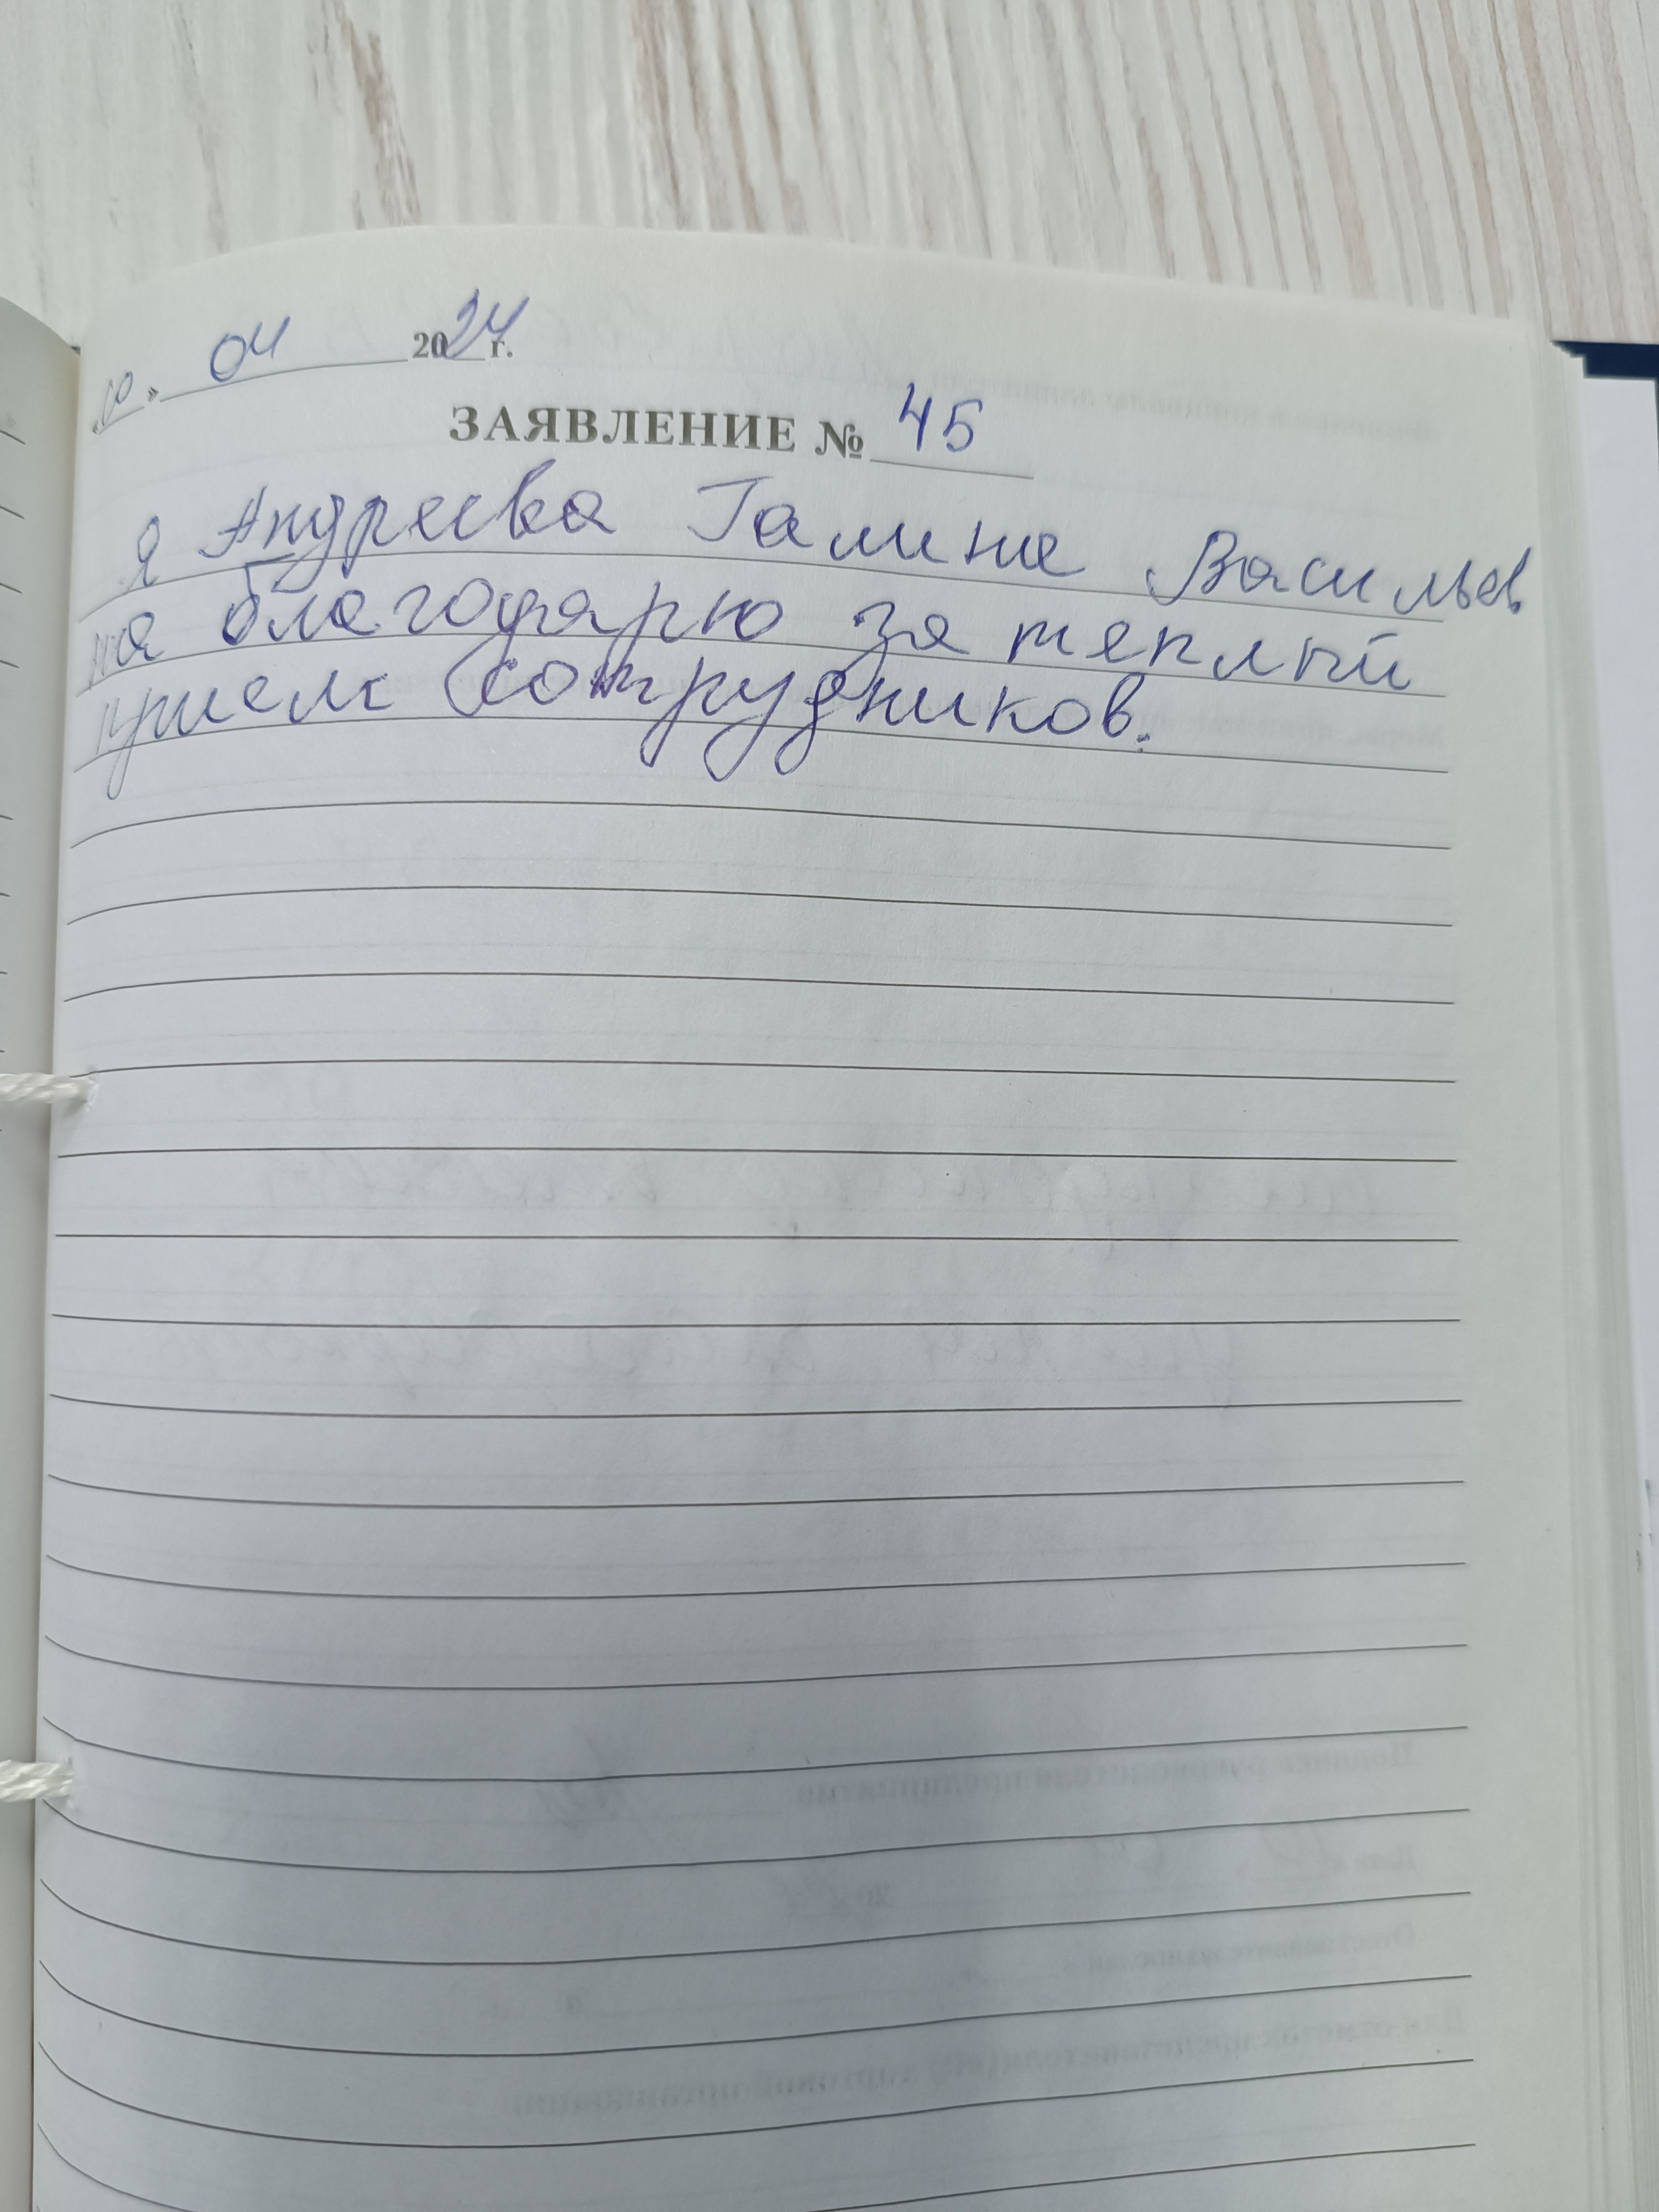 10» 04 2024 г.
ЗАЯВЛЕНИЕ № 45
Я Андреева Галина Васильев
на благодарю за теплый
прием сотрудников.